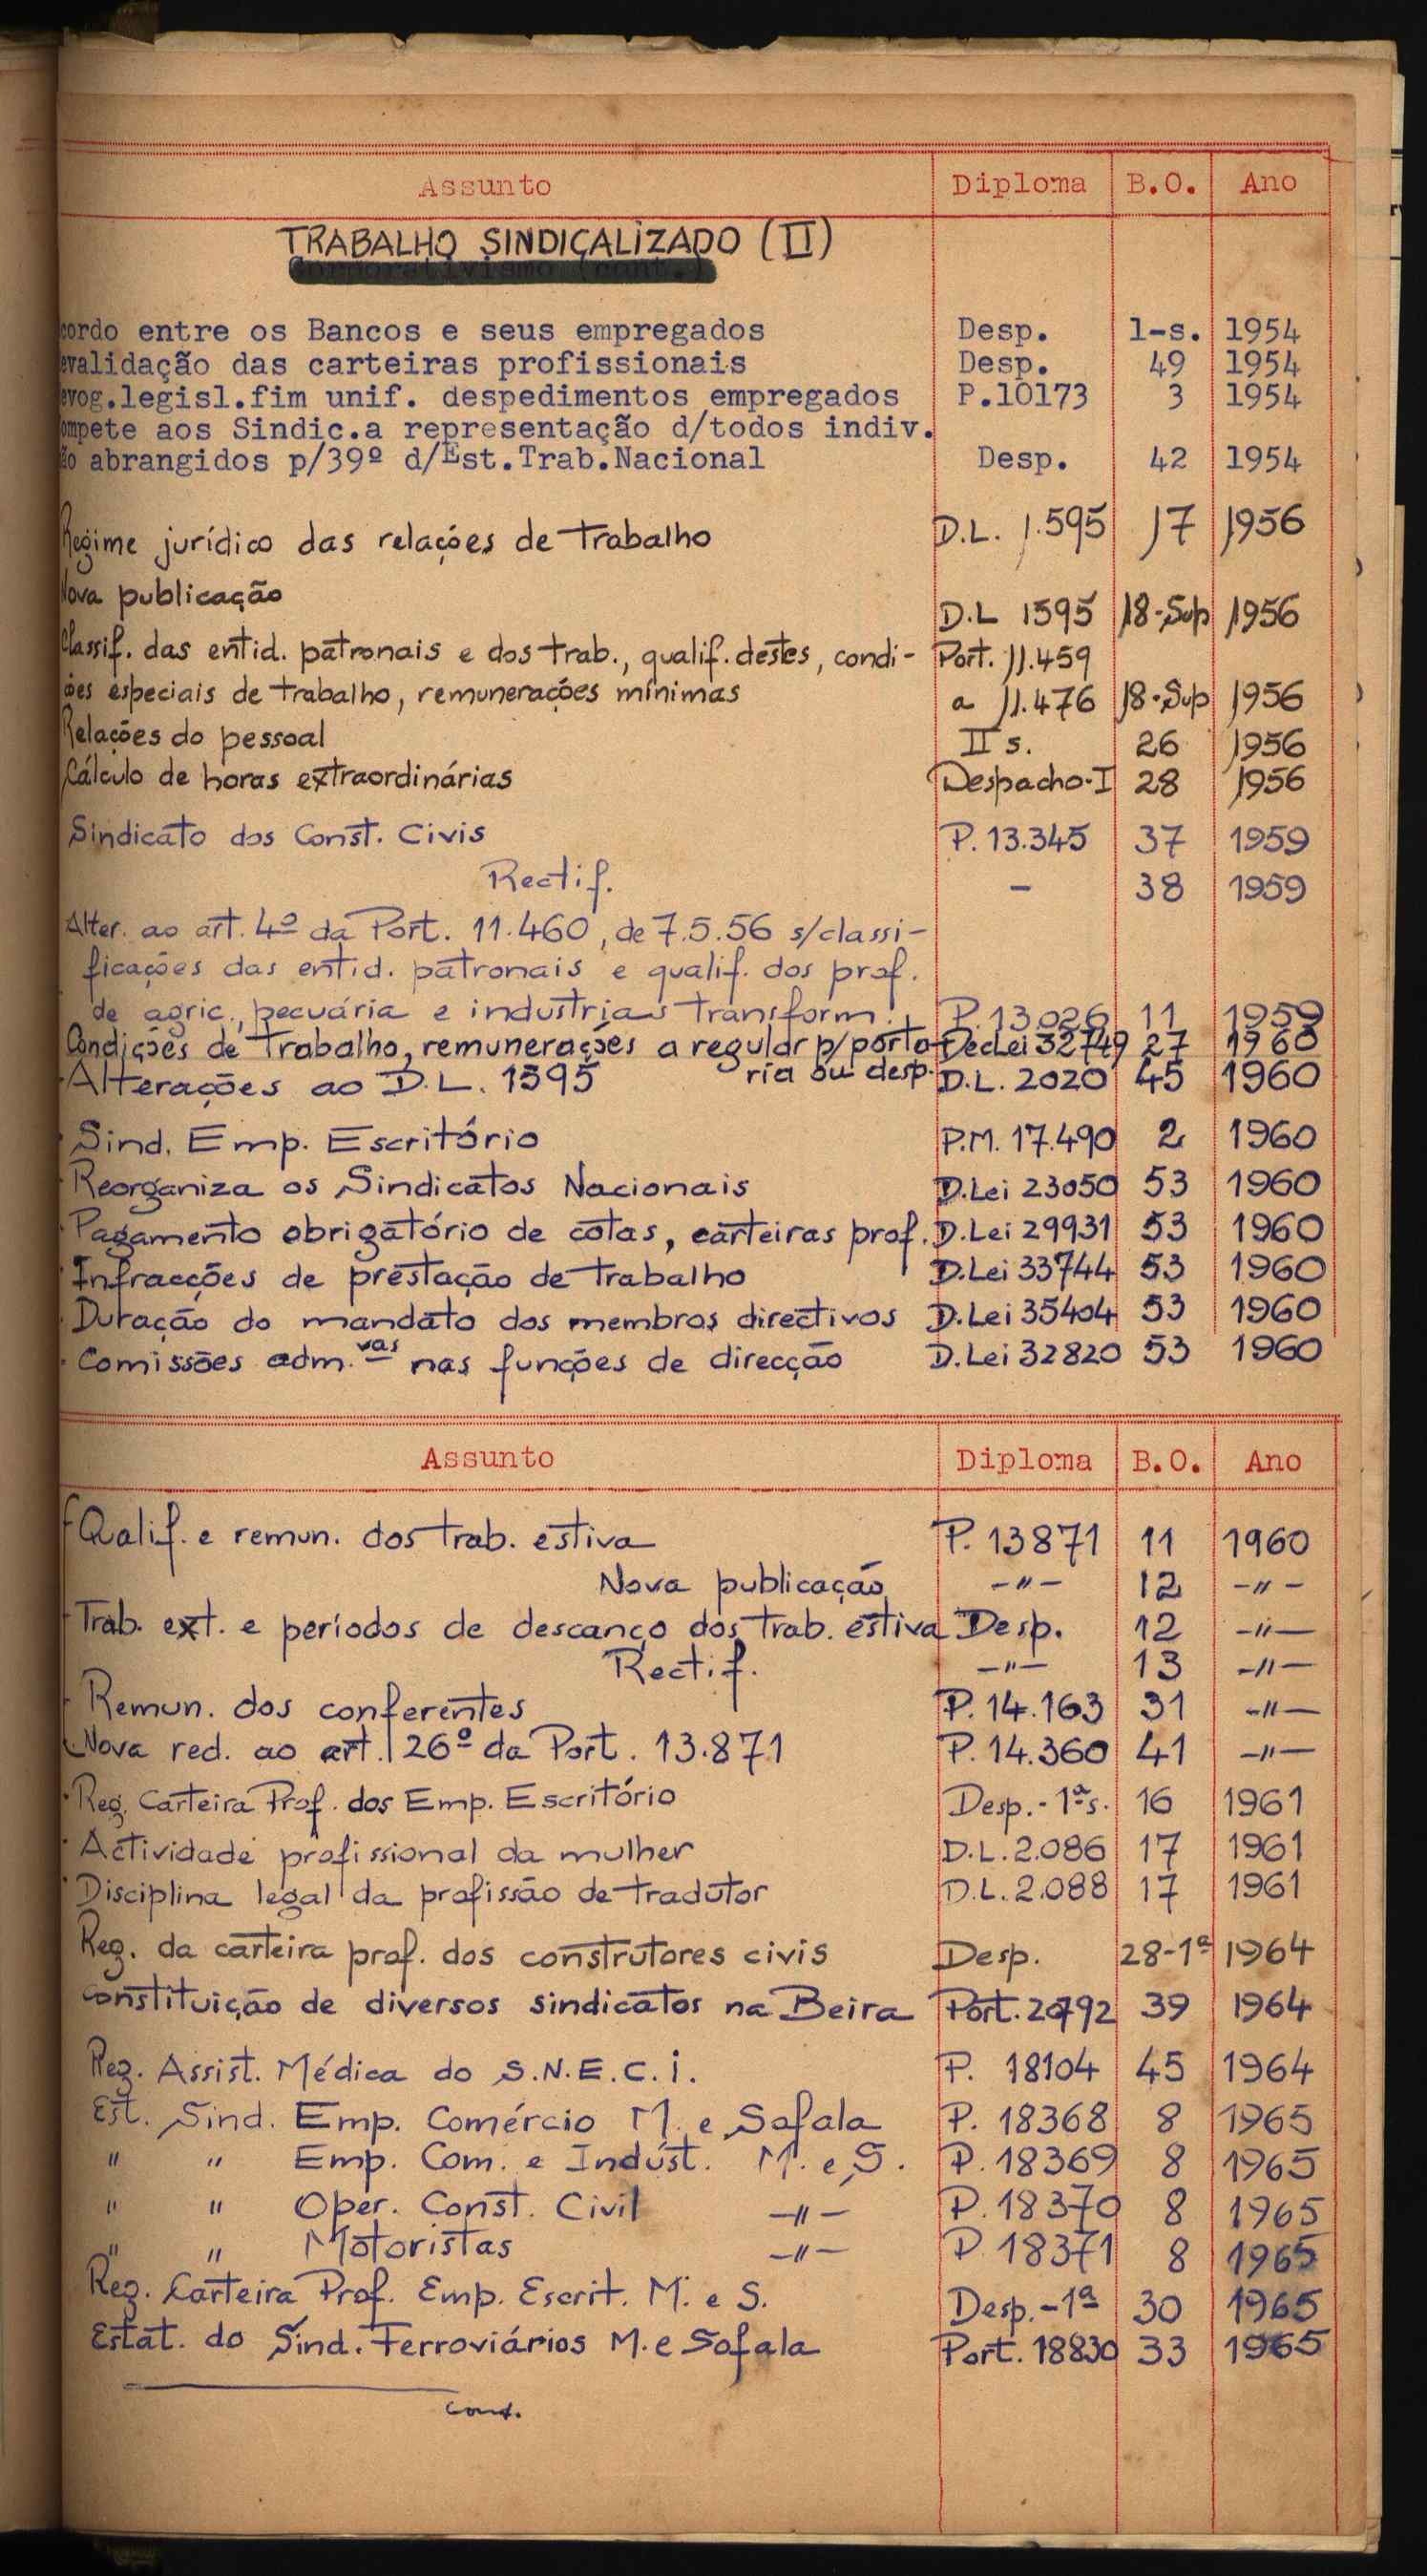 Assunto Diploma B.O. Ano
TRABALHO SINDICALIZADO (II)
Corporativismo (cont.)
cordo entre os Bancos e seus empregados Desp. 1-s. 1954
evalidação das carteiras profissionais Desp. 49 1954
evog.legisl.fim unif. despedimentos empregados P.10173 3 1954
ompete aos Sindic.a representação d/todos indiv.
ão abrangidos p/39º d/Est.Trab.Nacional Desp. 42 1954
Regime jurídico das relações de trabalho D.L. 1.595 17 1956
Nova publicação D.L 1595 18-Sup 1956
Classif. das entid. patronais e dos trab., qualif. destes, condi- Port. 11.459
ões especiais de trabalho, remunerações mínimas a 11.476 18-Sup 1956
Relações do pessoal II s. 26 1956
Cálculo de horas extraordinárias Despacho-I 28 1956
Sindicato dos Const. Civis P. 13.345 37 1959
Rectif. - 38 1959
Alter. ao art. 4º da Port. 11.460, de 7.5.56 s/classi-
ficações das entid. patronais e qualif. dos prof.
de agric., pecuária e industrias transform. P. 13026 11 1959
Condições de Trabalho, remunerações a regular p/porta- DecLei 32749 27 1960
ria ou desp.
Alterações ao D.L. 1595 D.L. 2020 45 1960
Sind. Emp. Escritório P.M. 17.490 2 1960
Reorganiza os Sindicatos Nacionais D.Lei 23050 53 1960
Pagamento obrigatório de cotas, carteiras prof. D.Lei 29931 53 1960
Infracções de prestação de trabalho D.Lei 33744 53 1960
Duração do mandato dos membros directivos D.Lei 35404 53 1960
Comissões adm.vas nas funções de direcção D.Lei 32820 53 1960
Assunto Diploma B.O. Ano
Qualif. e remun. dos trab. estiva P. 13871 11 1960
Nova publicação -"- 12 -"-
Trab. ext. e períodos de descanço dos trab. estiva Desp. 12 -"-
Rectif. -"- 13 -"-
Remun. dos conferentes P. 14.163 31 -"-
Nova red. ao art. 26º da Port. 13.871 P. 14.360 41 -"-
Reg. Carteira Prof. dos Emp. Escritório Desp.-1ªs. 16 1961
Actividade profissional da mulher D.L. 2.086 17 1961
Disciplina legal da profissão de tradutor D.L. 2.088 17 1961
Reg. da carteira prof. dos construtores civis Desp. 28-1ª 1964
Constituição de diversos sindicatos na Beira Port. 20792 39 1964
Reg. Assist. Médica do S.N.E.C.I. P. 18104 45 1964
Est. Sind. Emp. Comércio M. e Sofala P. 18368 8 1965
" " Emp. Com. e Indúst. M. e S. P. 18369 8 1965
" " Oper. Const. Civil -"- P. 18370 8 1965
" " Motoristas -"- P 18371 8 1965
Reg. Carteira Prof. Emp. Escrit. M. e S. Desp.-1ª 30 1965
Estat. do Sind. Ferroviários M. e Sofala Port. 18830 33 1965
Cont.